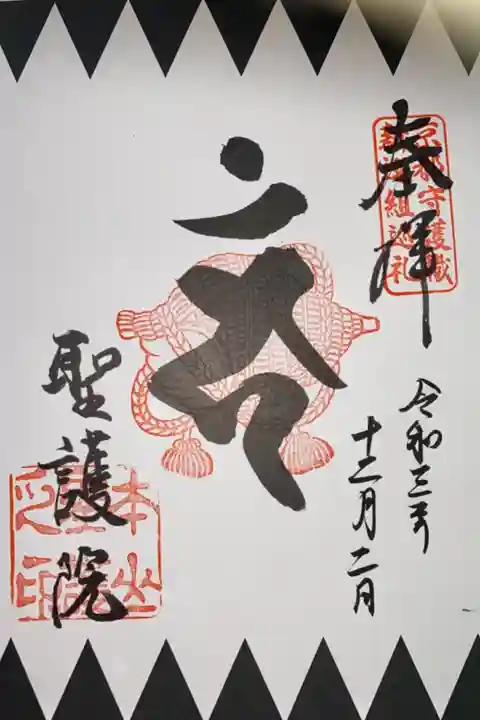 奉拝
京都守護職
新選組巡礼
令和三年
十二月二日
聖護院
本山